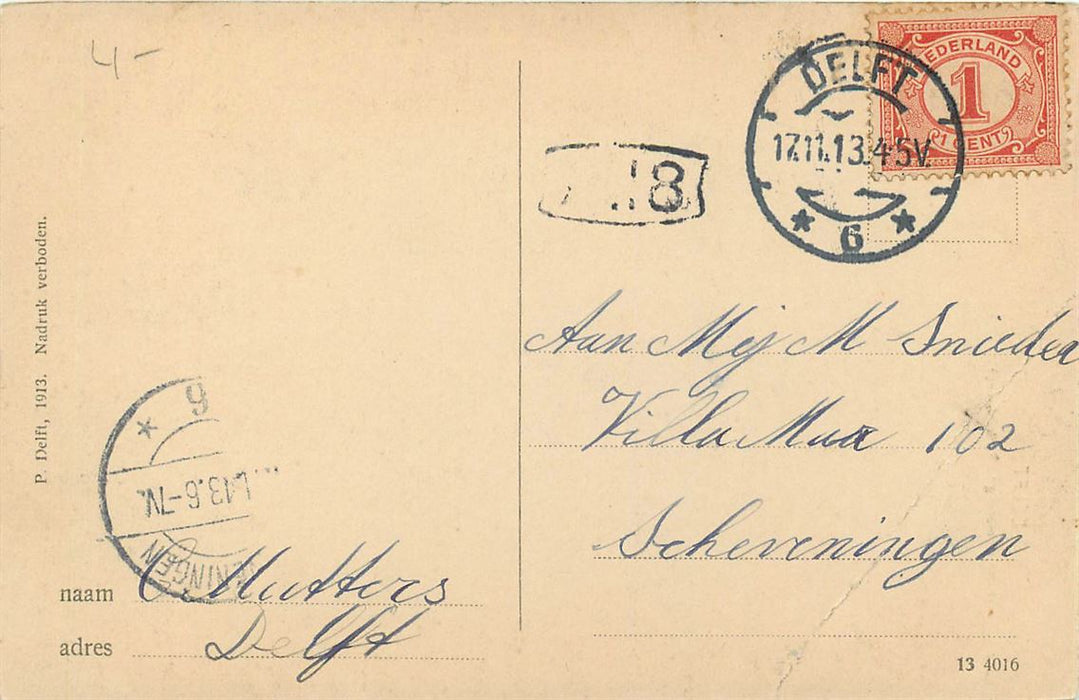 4-
NEDERLAND
1
1 CENT
DELFT
17.11.13.4-5V.
6
8
Aan Mej M Snieder
Villa Maa 102
Scheveningen
P. Delft, 1913. Nadruk verboden.
9
1.13.6-7V.
ENINGEN
naam C Mutters
adres Delft
13 4016